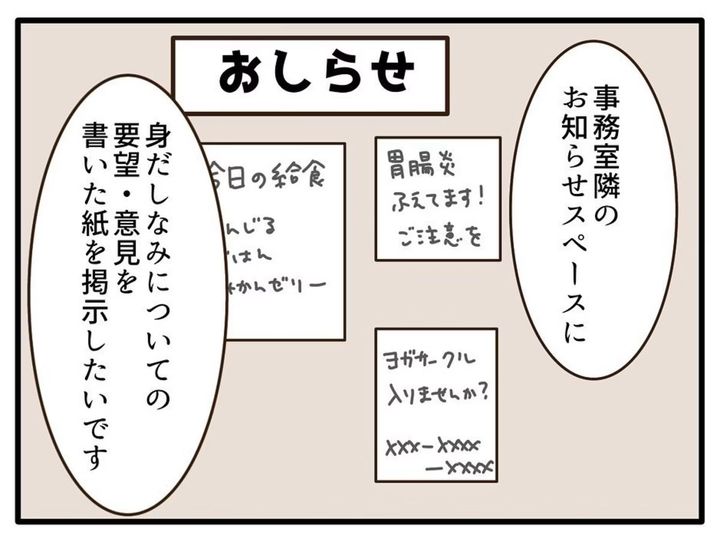 事務室隣の
お知らせスペースに
おしらせ
胃腸炎
ふえてます!
ご注意を
日の給食
んじる
はん
かんゼリー
ヨガサークル
入りませんか?
xxx-xxxx
-xxxx
身だしなみについての
要望・意見を
書いた紙を掲示したいです